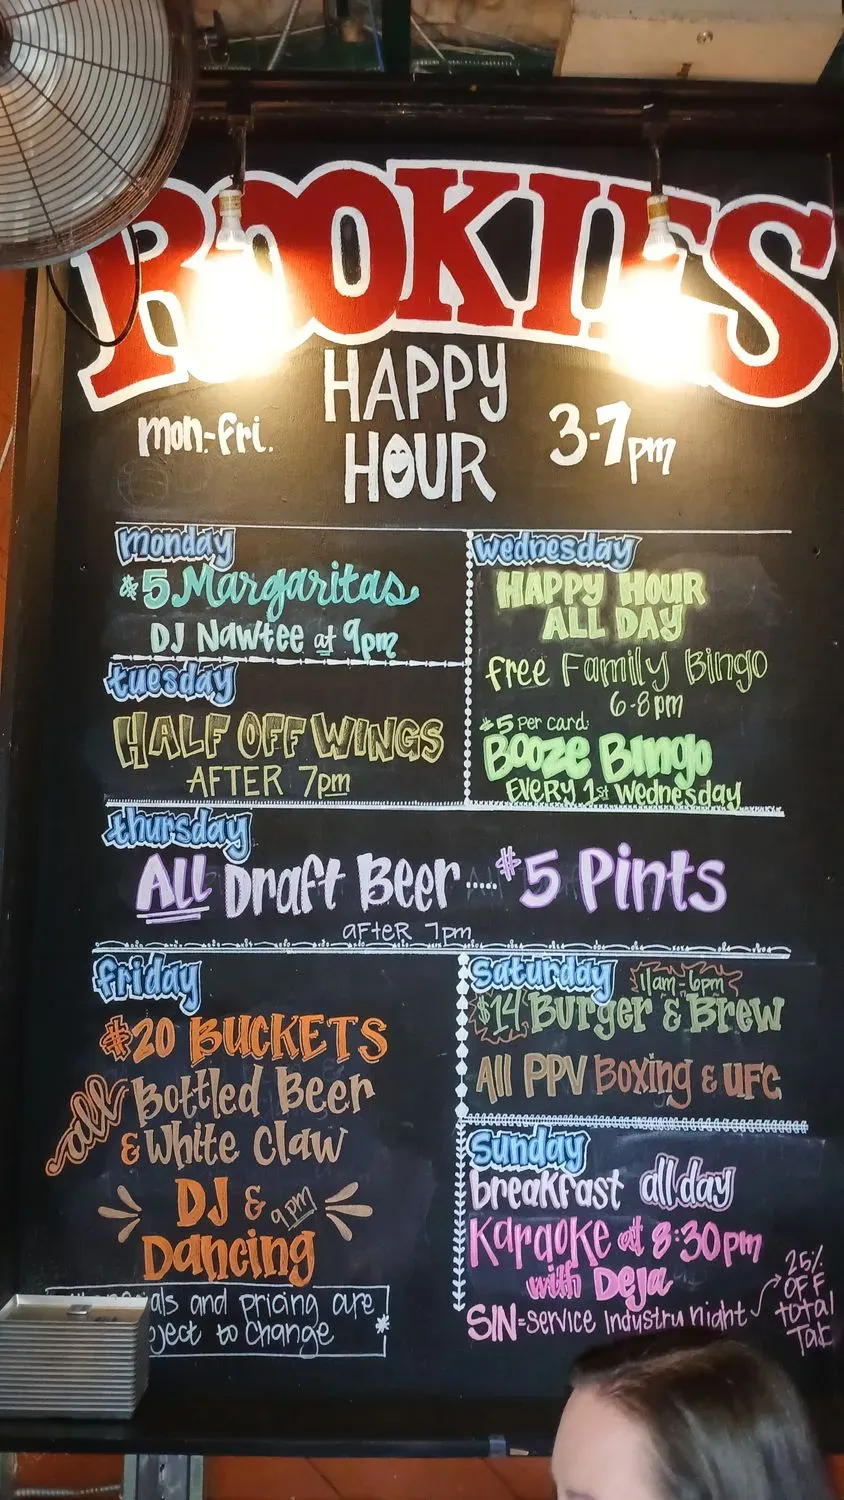 ROOKIES
HAPPY
HOUR
mon.-fri.
3-7pm
monday
$5 Margaritas
DJ Nawtee at 9pm
tuesday
HALF OFF WINGS
AFTER 7pm
wednesday
HAPPY HOUR
ALL DAY
free Family Bingo
6-8pm
$5 Per card:
Booze Bingo
EVERY 1st Wednesday
thursday
ALL Draft Beer.....$5 Pints
aFteR 7pm
friday
$20 BUCKETS
all Bottled Beer
& White Claw
DJ & 9pm
Dancing
and pricing are
to change *
Saturday 11am-6pm
$14 Burger & Brew
All PPV Boxing & UFC
Sunday
breakfast all day
Karaoke at 8:30pm
with Deja
SIN=Service Industry night
25%
OFF
total
Tab